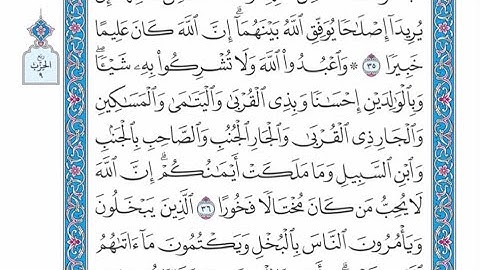 يُرِيدَآ إِصْلَٰحًا يُوَفِّقِ ٱللَّهُ بَيْنَهُمَآۗ إِنَّ ٱللَّهَ كَانَ عَلِيمًا
خَبِيرًا ٣٥ ۞ وَٱعْبُدُواْ ٱللَّهَ وَلَا تُشْرِكُواْ بِهِۦ شَيْـًٔاۖ
وَبِٱلْوَٰلِدَيْنِ إِحْسَٰنًا وَبِذِى ٱلْقُرْبَىٰ وَٱلْيَتَٰمَىٰ وَٱلْمَسَٰكِينِ
وَٱلْجَارِ ذِى ٱلْقُرْبَىٰ وَٱلْجَارِ ٱلْجُنُبِ وَٱلصَّاحِبِ بِٱلْجَنۢبِ
وَٱبْنِ ٱلسَّبِيلِ وَمَا مَلَكَتْ أَيْمَٰنُكُمْۗ إِنَّ ٱللَّهَ
لَا يُحِبُّ مَن كَانَ مُخْتَالًا فَخُورًا ٣٦ ٱلَّذِينَ يَبْخَلُونَ
وَيَأْمُرُونَ ٱلنَّاسَ بِٱلْبُخْلِ وَيَكْتُمُونَ مَآ ءَاتَىٰهُمُ
ربع
الحزب
٩